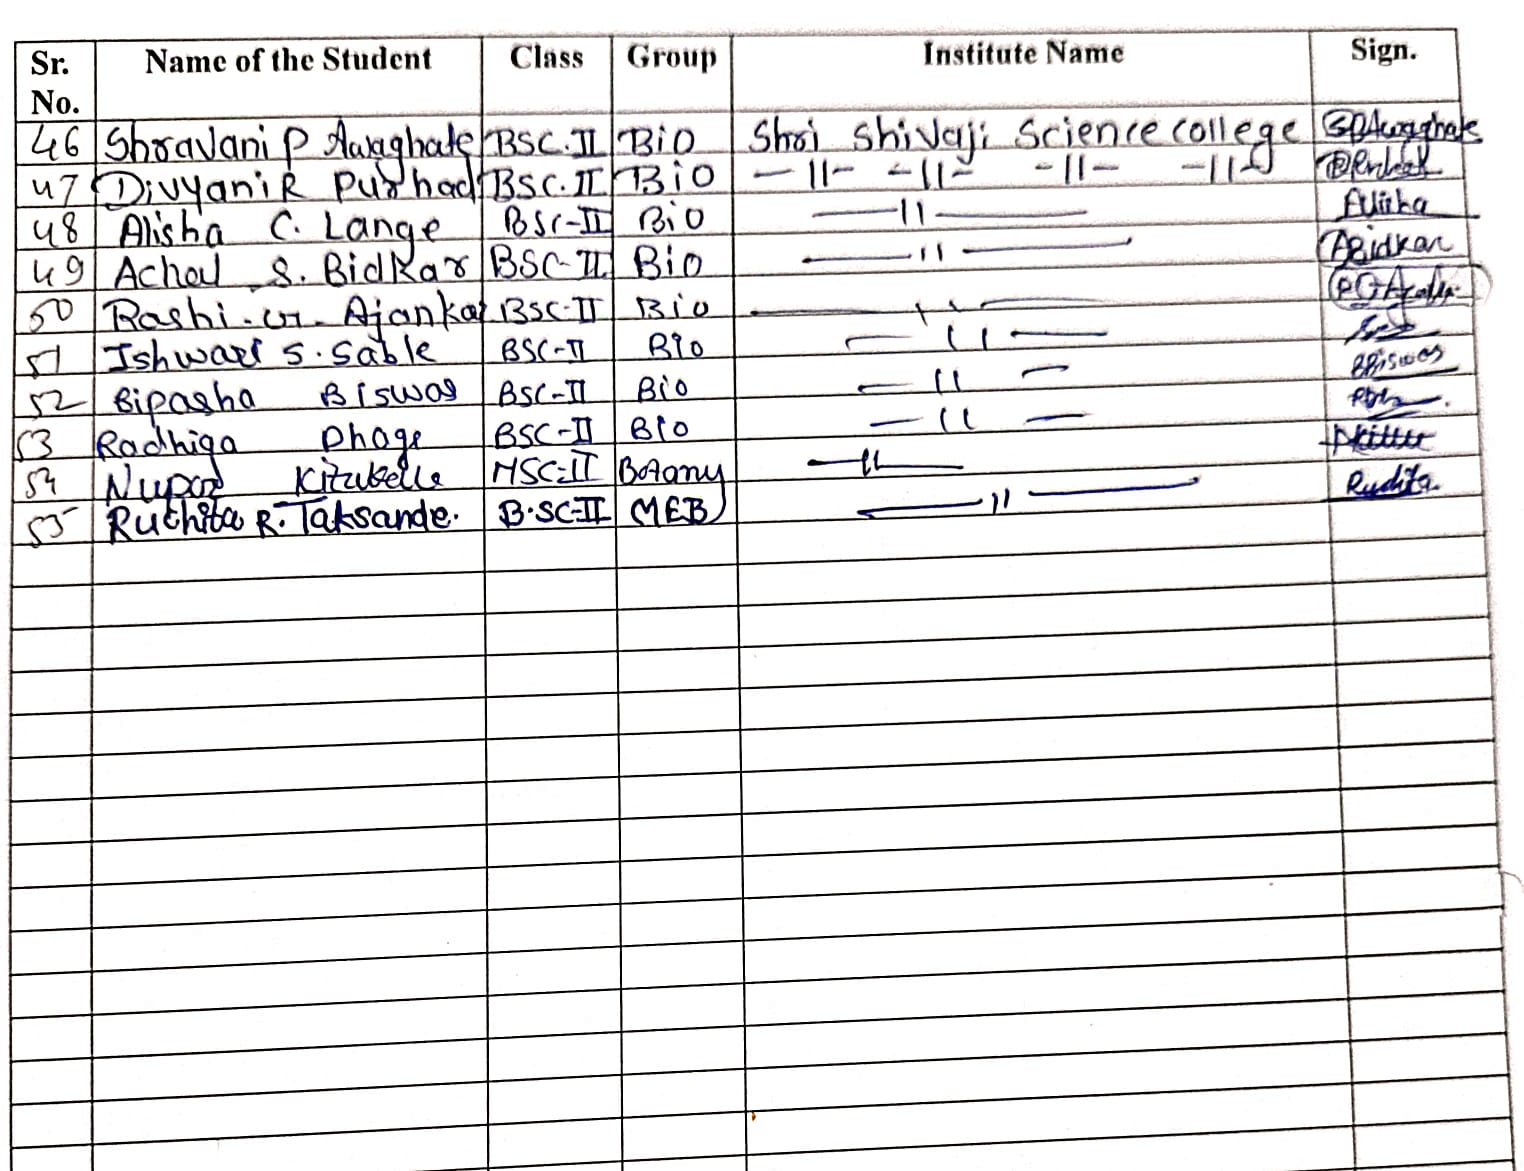 Sr. No. Name of the Student Class Group Institute Name Sign.
46 Shravani P Awaghate BSC.II Bio Shri Shivaji Science college SPAwaghate
47 Divyani R Purhad BSC.II Bio -11- -11- -11- -11-
48 Alisha C. Lange BSC-II Bio -11- Alisha
49 Achal S. Bidkar BSC-II Bio -11- ABidkar
50 Rashi. G. Ajankar BSC-II Bio -11-
51 Ishwari S. Sable BSC-II Bio -11-
52 Bipasha Biswas BSC-II Bio -11- BBiswas
53 Radhiga Dhage BSC-II Bio -11-
54 Nupor MSC-II Botany -11-
55 Ruchita R. Taksande. B.SC-II MEB -11-